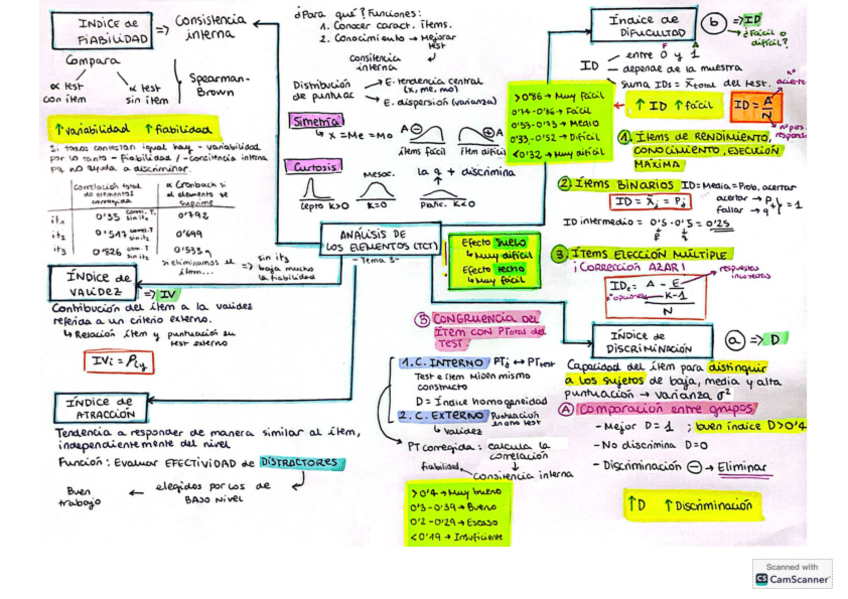 ÍNDICE DE FIABILIDAD => Consistencia interna
Compara
α test con ítem
α test sin ítem
Spearman-Brown
↑ variabilidad ↑ fiabilidad
Si todos contestan igual hay - variabilidad
por lo tanto - fiabilidad / - consistencia interna
no ayuda a discriminar.
Correlación total de elementos corregida
α Cronbach si el elemento se suprime
it1 0'35 sin it1 0'792
it2 0'547 sin it2 0'699
it3 0'826 sin it3 0'533
si eliminamos el ítem... => sin it3 baja mucho la fiabilidad
¿Para qué? Funciones:
1. Conocer caract. ítems.
2. Conocimiento → Mejorar test
consitencia interna
Distribución de puntuac
E. tendencia central (x, me, mo)
E. dispersión (varianza)
Simetría
↳ x = Me = Mo
A -
ítems fácil
+ A
ítem difícil
Curtosis
Mesoc.
la q + discrimina
lepto K>0
K=0
platic. K<0
ANÁLISIS DE LOS ELEMENTOS (TCT)
- Tema 3 -
Efecto suelo
↳ Muy difícil
Efecto techo
↳ Muy fácil
Índice de DIFICULTAD
b => ID
¿Fácil o difícil?
ID
entre 0 y 1
depende de la muestra
suma IDs = X̄total del test.
>0'86 → Muy fácil
0'74-0'86 → Fácil
0'53-0'73 → Medio
0'33-0'52 → Difícil
<0'32 → Muy difícil
↑ ID ↑ fácil
ID = A/N
nº acierto
1. Ítems de RENDIMIENTO, CONOCIMIENTO, EJECUCIÓN MÁXIMA
2. Ítems BINARIOS ID = Media = Prob. acertar
ID = X̄j = Pj
acertar → P
fallar → q
+ = 1
ID intermedio = 0'5 · 0'5 = 0'25
p q
3. Ítems ELECCIÓN MÚLTIPLE
¡CORRECCIÓN AZAR!
respuestas incorrectas
IDc = A - E/K-1 / N
*opciones
ÍNDICE DE VALIDEZ => IV
Contribución del ítem a la validez
referida a un criterio externo.
↳ Relación ítem y puntuación en test externo
IVi = Piy
ÍNDICE DE ATRACCIÓN
Tendencia a responder de manera similar al ítem,
independientemente del nivel
Función: Evaluar EFECTIVIDAD de DISTRACTORES
elegidos por los de BAJO NIVEL
← Buen trabajo
B CONGRUENCIA DEL ÍTEM CON PTotal del TEST.
1. C. INTERNO PTj ↔ PTtest
Test e ítem miden mismo constructo
D = Índice homogeneidad
2. C. EXTERNO Puntuación en otro test
↳ Validez
PT corregida: calcula la correlación
fiabilidad
Consitencia interna
>0'4 → Muy bueno
0'3-0'39 → Bueno
0'2-0'29 → Escaso
<0'19 → Insuficiente
ÍNDICE DE DISCRIMINACIÓN
a => D
Capacidad del ítem para distinguir
a los sujetos de baja, media y alta
puntuación → varianza σ²
A Comparación entre grupos
- Mejor D=1 ; buen índice D>0'4
- No discrimina D=0
- Discriminación - → Eliminar
↑D ↑ Discriminación
Scanned with
CS CamScanner